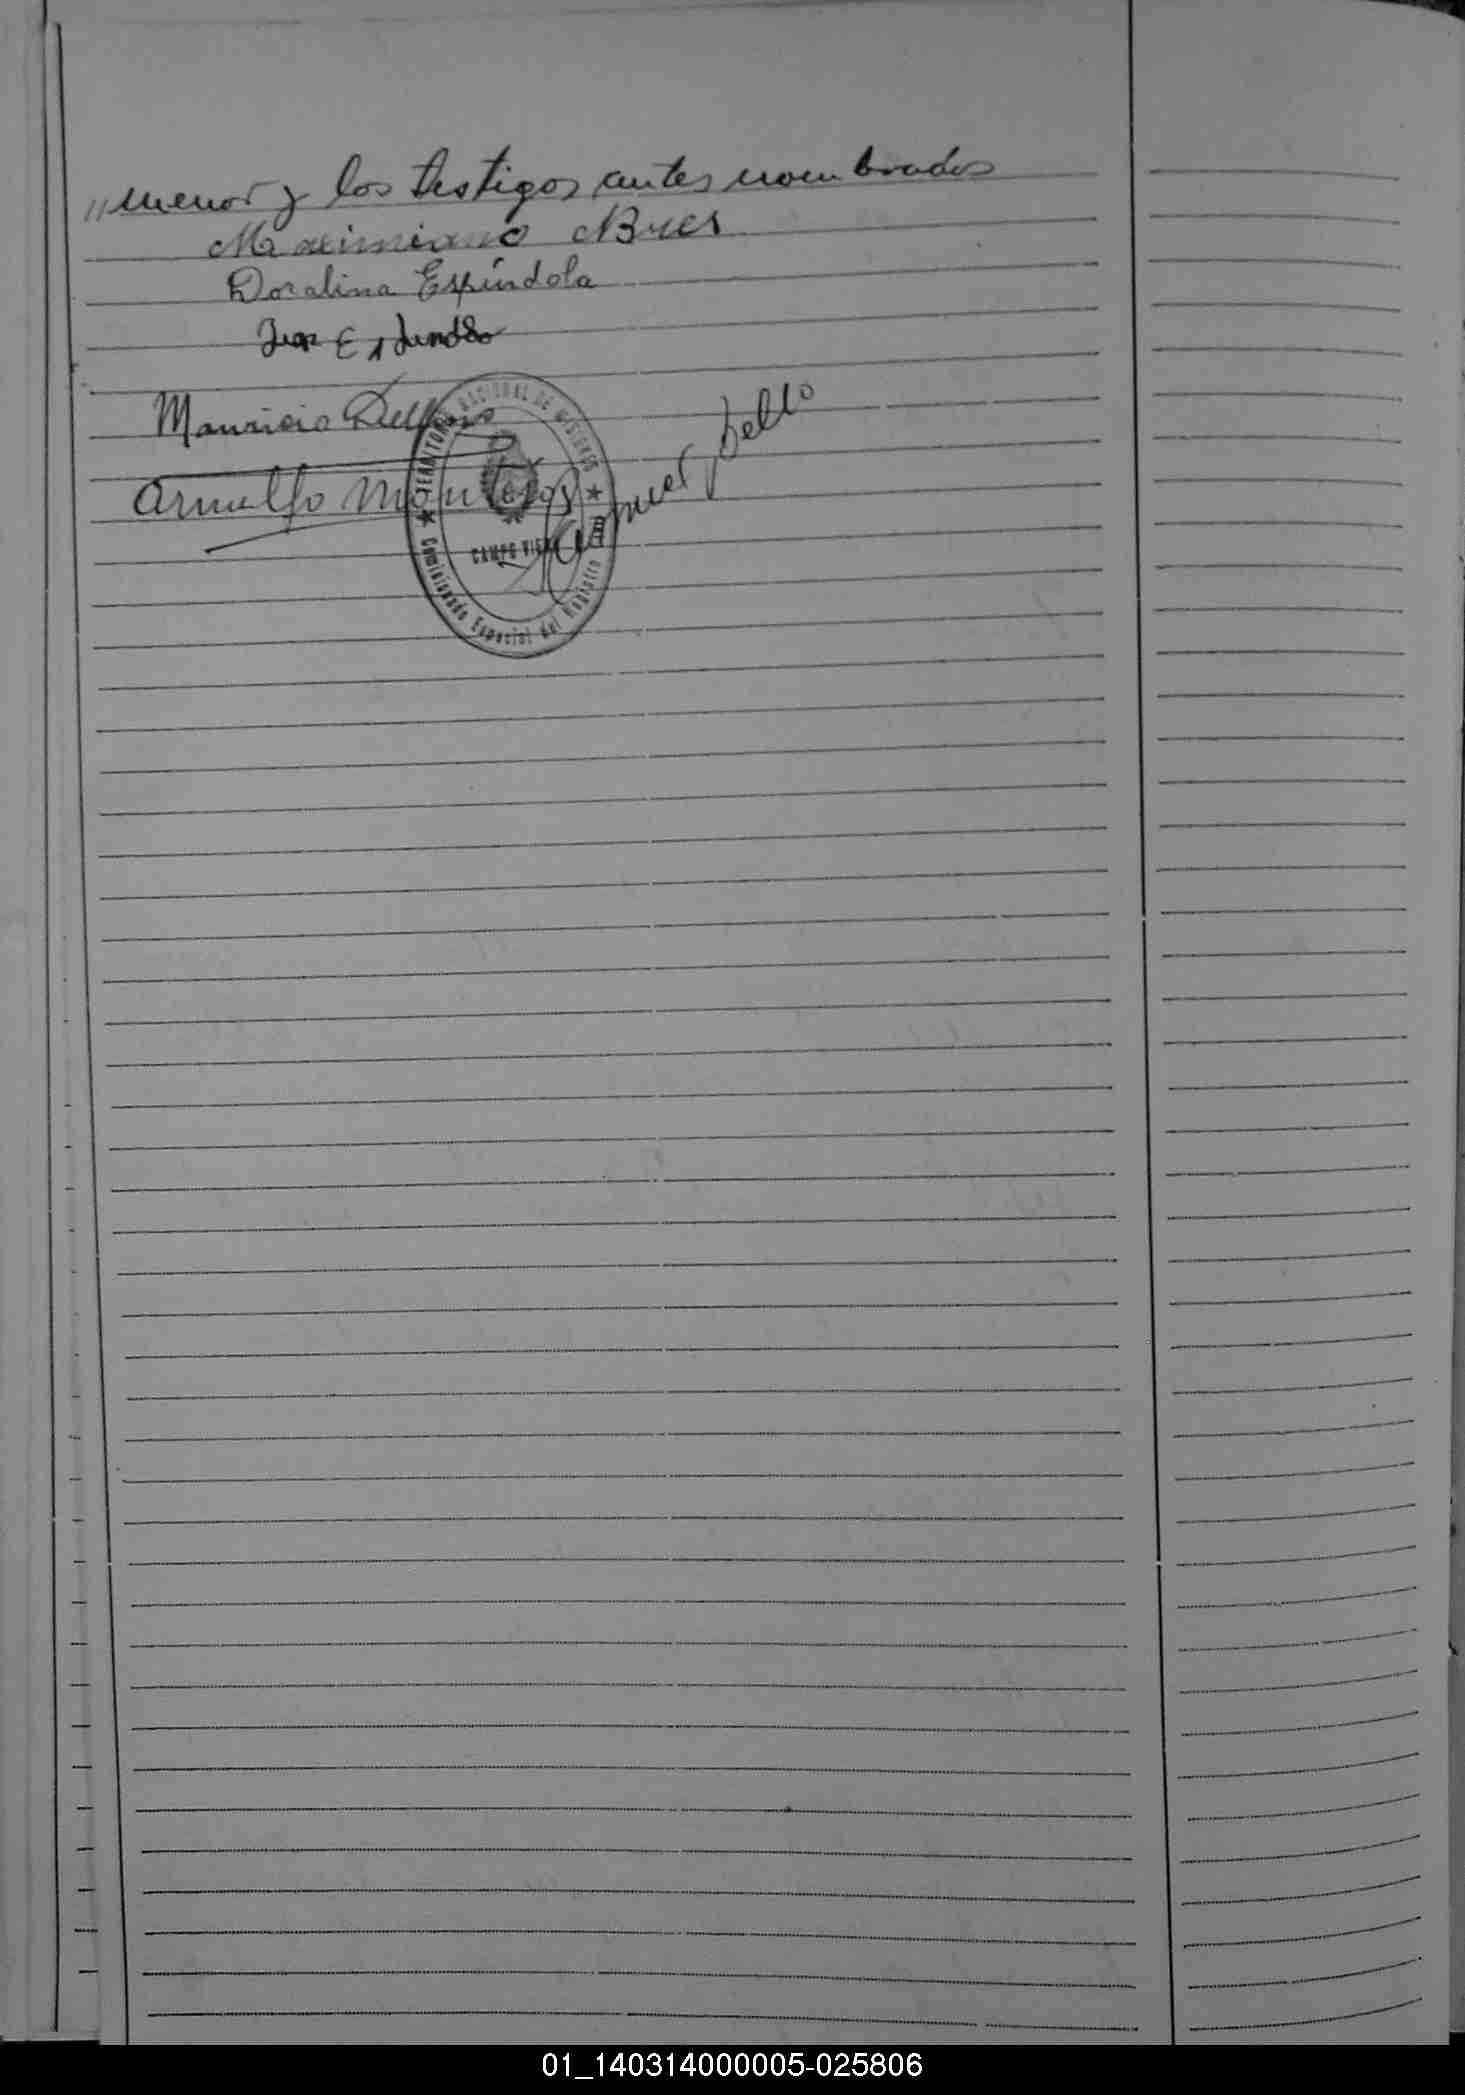 "menor y los testigos antes nombrados
Maximiano Bues
Doralina Espíndola
Juan Espíndola
Mauricio
Arnulfo Montiel
Manuel Bello
★ TERRITORIO NACIONAL DE MISIONES ★
CAMPO VIERA
Comisionado Especial del Registro
01_140314000005-025806